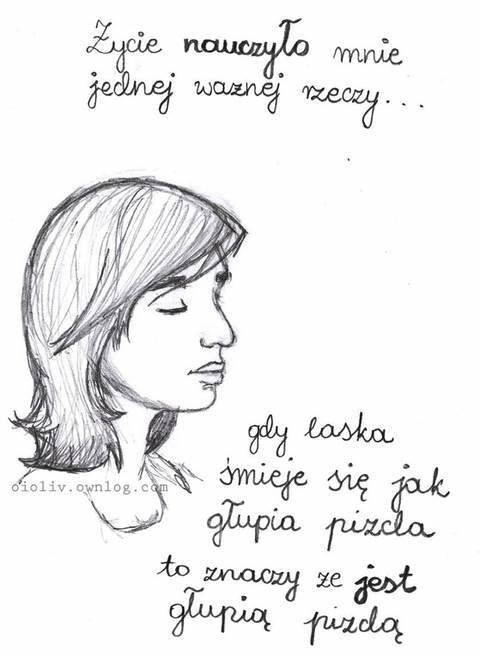 Życie nauczyło mnie
jednej ważnej rzeczy...
gdy laska
śmieje się jak
głupia pizda
to znaczy ze jest
głupią pizdą
oioliv.ownlog.com